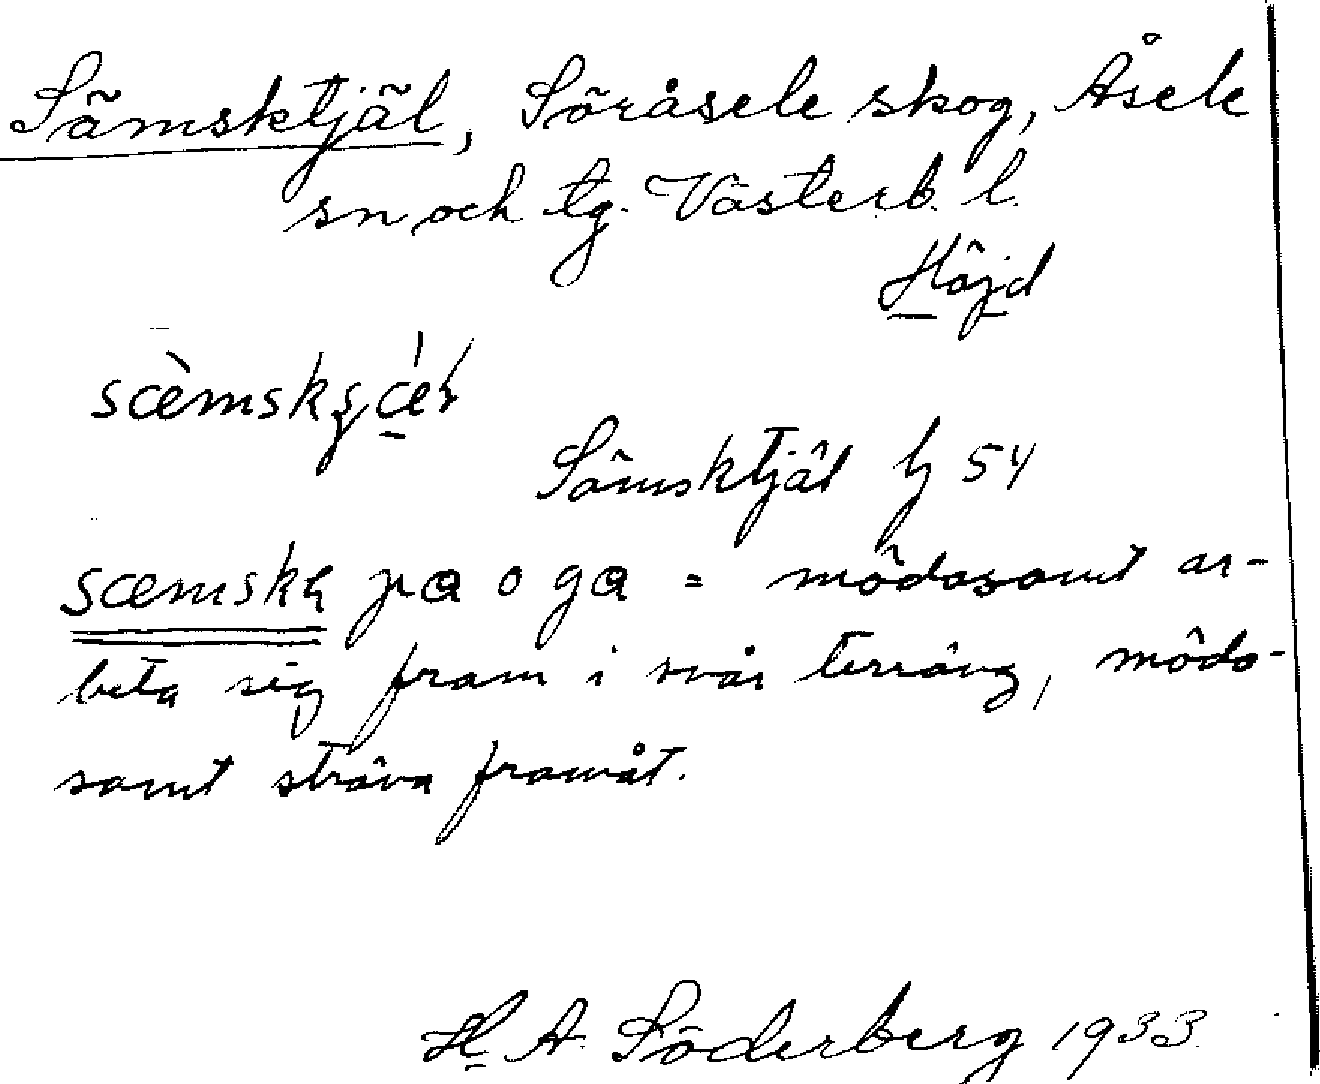 Sämsktjäl, Söråsele skog, Åsele
sn och tg. Västerb. l.
Höjd
Sämsktjäl bz 54
pa o ga = mödosamt ar-
beta sig fram i svår terräng, mödo-
samt sträva framåt.
H. A. Söderberg 1933